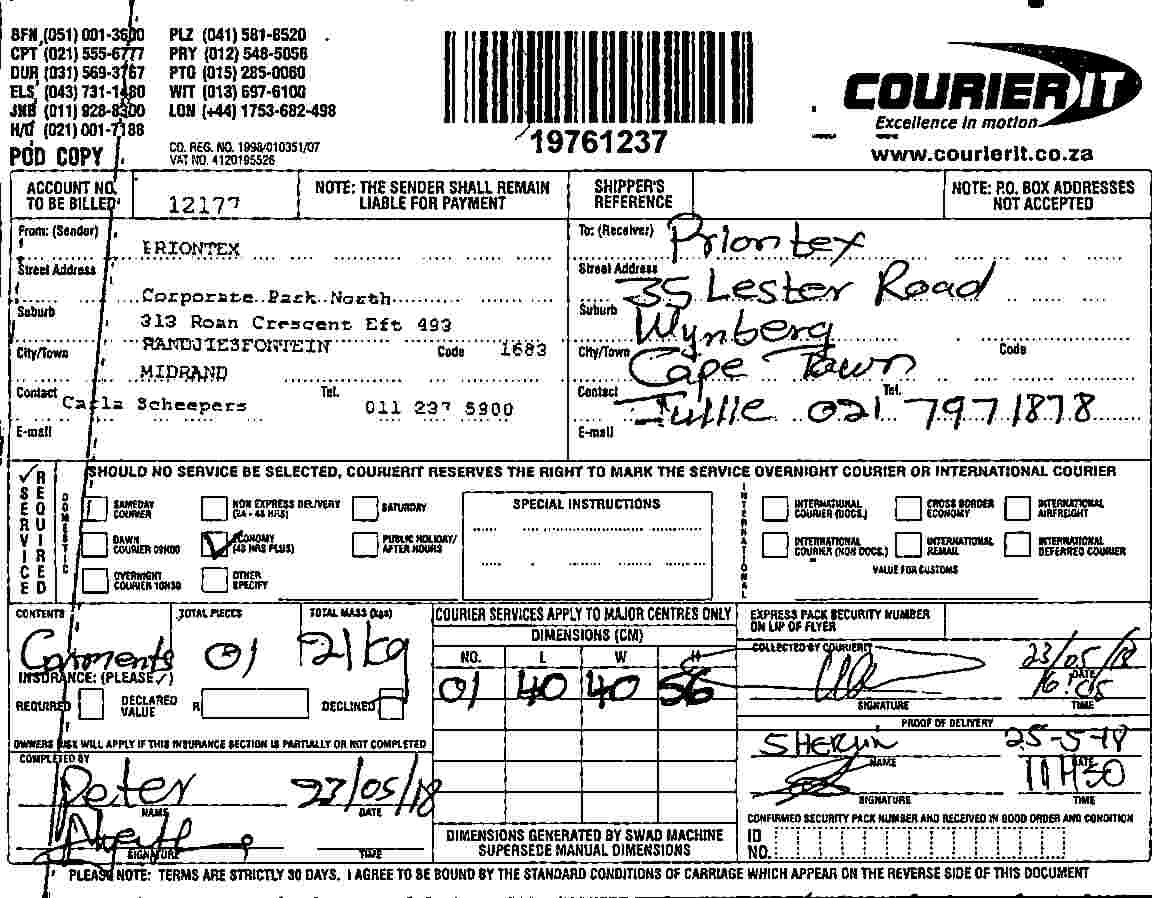 BFN (051) 001-3600 PLZ (041) 581-8520
CPT (021) 555-6777 PRY (012) 548-5056
DUR (031) 569-3767 PTG (015) 285-0060
ELS (043) 731-1480 WIT (013) 697-6100
JNB (011) 928-8300 LON (+44) 1753-682-498
H/O (021) 001-7188
POD COPY
CO. REG. NO. 1998/010351/07
VAT NO. 4120195526
19761237
COURIER IT
Excellence in motion
www.courierit.co.za
ACCOUNT NO. TO BE BILLED 12177
NOTE: THE SENDER SHALL REMAIN LIABLE FOR PAYMENT
SHIPPER'S REFERENCE
NOTE: P.O. BOX ADDRESSES NOT ACCEPTED
From: (Sender) PRIONTEX
Street Address
Corporate Park North
Suburb
313 Roan Crescent Eft 493
City/Town RANDJIESFONTEIN Code 1683
MIDRAND
Contact Carla Scheepers Tel. 011 237 5900
E-mail
To: (Receiver) Priontex
Street Address 35 Lester Road
Suburb Wynberg
City/Town Cape Town Code
Contact Jullie Tel. 021 797 1878
E-mail
SERVICE REQUIRED
SHOULD NO SERVICE BE SELECTED, COURIERIT RESERVES THE RIGHT TO MARK THE SERVICE OVERNIGHT COURIER OR INTERNATIONAL COURIER
DOMESTIC
SAMEDAY COURIER
NON EXPRESS DELIVERY (24 - 48 HRS)
SATURDAY
DAWN COURIER 09H00
ECONOMY (48 HRS PLUS)
PUBLIC HOLIDAY/ AFTER HOURS
OVERNIGHT COURIER 10H30
OTHER SPECIFY
SPECIAL INSTRUCTIONS
INTERNATIONAL
INTERNATIONAL COURIER (DOCS.)
CROSS BORDER ECONOMY
INTERNATIONAL AIRFREIGHT
INTERNATIONAL COURIER (NON DOCS.)
INTERNATIONAL REMAIL
INTERNATIONAL DEFERRED COURIER
VALUE FOR CUSTOMS
CONTENTS Garments
TOTAL PIECES 01
TOTAL MASS (kgs) 21kg
INSURANCE: (PLEASE ✓)
REQUIRED DECLARED VALUE R DECLINED
OWNERS RISK WILL APPLY IF THIS INSURANCE SECTION IS PARTIALLY OR NOT COMPLETED
COMPLETED BY
Peter 23/05/18
NAME DATE
SIGNATURE TIME
COURIER SERVICES APPLY TO MAJOR CENTRES ONLY
DIMENSIONS (CM)
NO. L W H
01 40 40 56
DIMENSIONS GENERATED BY SWAD MACHINE SUPERSEDE MANUAL DIMENSIONS
EXPRESS PACK SECURITY NUMBER ON LIP OF FLYER
COLLECTED BY COURIERIT
23/05/18
DATE
16:05
SIGNATURE TIME
PROOF OF DELIVERY
25-5-18
NAME DATE
11H30
SIGNATURE TIME
CONFIRMED SECURITY PACK NUMBER AND RECEIVED IN GOOD ORDER AND CONDITION
ID NO.
PLEASE NOTE: TERMS ARE STRICTLY 30 DAYS. I AGREE TO BE BOUND BY THE STANDARD CONDITIONS OF CARRIAGE WHICH APPEAR ON THE REVERSE SIDE OF THIS DOCUMENT